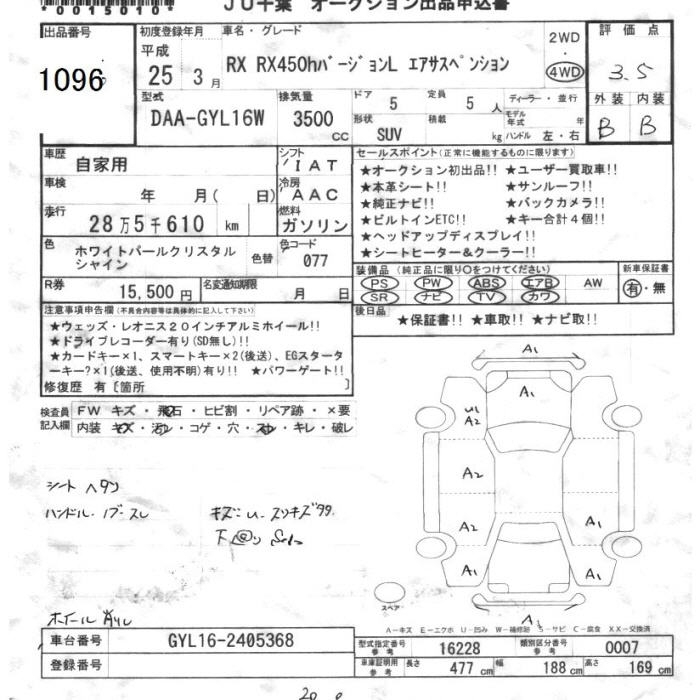 *0015010*
JU千葉 オークション出品申込書
出品番号
1096
初度登録年月
平成
25 3月
車名・グレード
RX RX450hバージョンL エアサスペンション
2WD
・
4WD
評価点
3.5
外装 内装
B B
型式
DAA-GYL16W
排気量
3500 cc
ドア 5
定員 5 人
形状 SUV
積載 kg
ディーラー・並行
モデル年式 年
ハンドル 左・右
車歴 自家用
シフト IAT
車検 年 月( 日)
冷房 AAC
走行 28万5千610 km
燃料 ガソリン
色 ホワイトパールクリスタル
シャイン
色替
色コード 077
R券 15,500円
名変通知期限 月 日
セールスポイント(正常に機能するものに限ります)
★オークション初出品!! ★ユーザー買取車!!
★本革シート!! ★サンルーフ!!
★純正ナビ!! ★バックカメラ!!
★ビルトインETC!! ★キー合計4個!!
★ヘッドアップディスプレイ!!
★シートヒーター&クーラー!!
装備品(純正品に限り○をつけてください)
PS PW ABS エアB AW
SR ナビ TV カワ
新車保証書
有・無
後日品 ★保証書!! ★車取!! ★ナビ取!!
注意事項申告欄(不具合内容等は具体的に記入して下さい)
★ウェッズ・レオニス20インチアルミホイール!!
★ドライブレコーダー有り(SD無し)!!
★カードキー×1、スマートキー×2(後送)、EGスタータ
ーキー?×1(後送、使用不明)有り!! ★パワーゲート!!
修復歴 有[箇所
検査員
記入欄
FW キズ・飛石・ヒビ割・リペア跡・×要
内装 キズ・汚れ・コゲ・穴・スレ・キレ・破レ
シート ヘタリ
ハンドル・ノブ・スレ
キズ・U・スリキズ
下
ホイール
A1
A1
U1
A2
A2
A2
A1
A1
A1
スペア
A-キズ E-エクボ U-凹み W-補修跡 S-サビ C-腐食 XX-交換済
車台番号 GYL16-2405368
登録番号
型式指定番号
参考
16228
類別区分番号
参考
0007
車庫証明用
参考
長さ 477 cm
幅 188 cm
高さ 169 cm